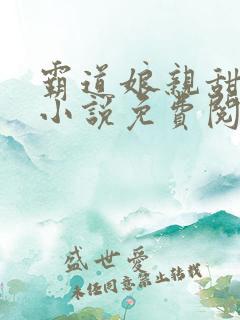 霸道娘親甜
小說免費閱
盛世愛
未经同意禁止转载